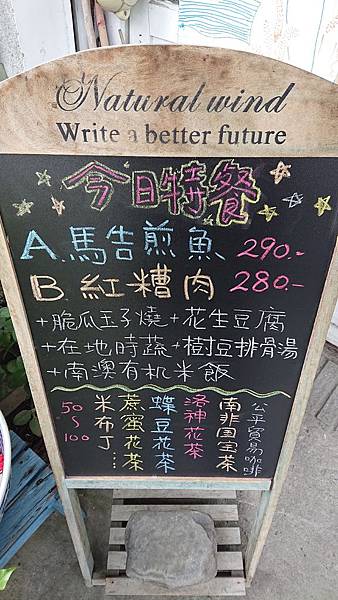 Natural wind
Write a better future
今日特餐
A.馬告煎魚 290.-
B.紅糟肉 280.-
+脆瓜玉子燒+花生豆腐
+在地時蔬+樹豆排骨湯
+南澳有机米飯
公平貿易咖啡
南非国宝茶
洛神花茶
蝶豆花茶
蔗蜜花茶
米布丁...
50~100